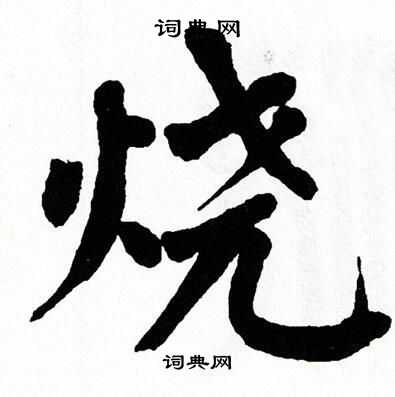 词典网
烧
词典网